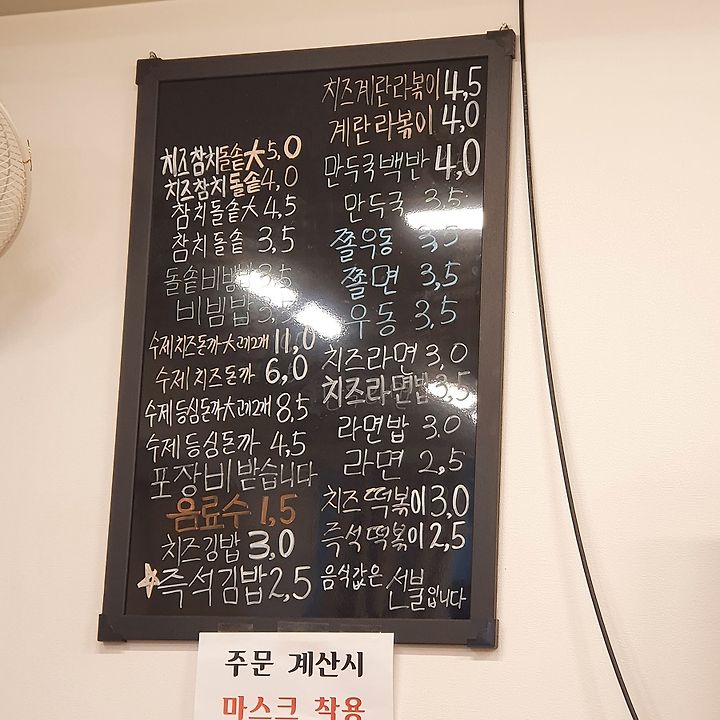 치즈참치돌솥大 5,0
치즈참치돌솥 4,0
참치돌솥大 4,5
참치돌솥 3,5
돌솥비빔밥 3,5
비빔밥 3,5
수제치즈돈까大고기2개 11,0
수제치즈돈까 6,0
수제등심돈까大고기2개 8,5
수제등심돈까 4,5
포장비받습니다
음료수 1,5
치즈김밥 3,0
☆즉석김밥 2,5
치즈계란라볶이 4,5
계란라볶이 4,0
만두국백반 4,0
만두국 3,5
쫄우동 3,5
쫄면 3,5
우동 3,5
치즈라면 3,0
치즈라면밥 3,5
라면밥 3,0
라면 2,5
치즈떡볶이 3,0
즉석떡볶이 2,5
음식값은 선불입니다
주문 계산시
마스크 착용